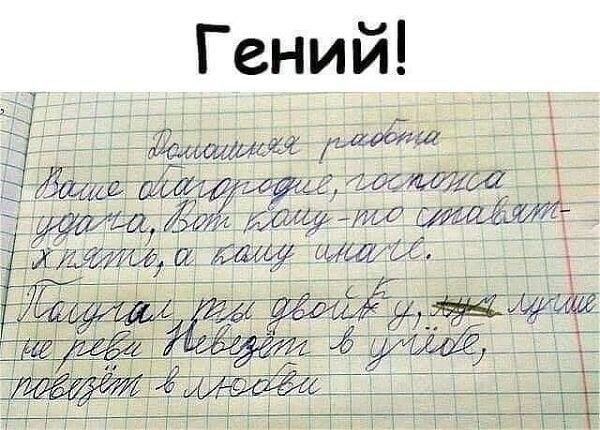 Гений!
Домашняя работа
Ваше благородие, госпожа
удача, Вот кому-то ставят-
х пять, а кому иначе.
Палучал ты двойку, луч лучше
не реви Невезёт в учёбе,
повезёт в любви